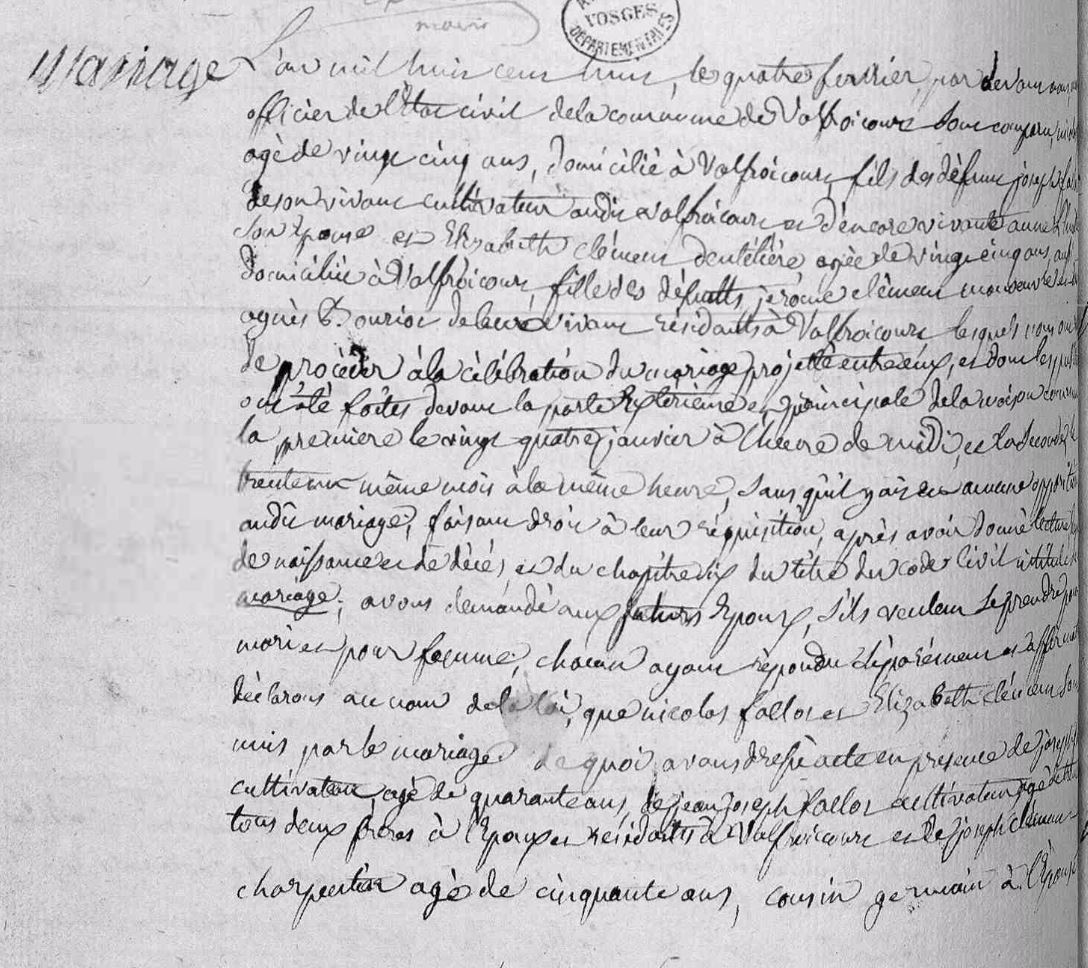 maire
VOSGES
DÉPARTEMENTALES
Mariage
L'an mil huit cent huit, le quatre fevrier, par devant nous
officier de l'état civil de la commune de Valfroicourt sont comparu
agé de vingt cinq ans, domicilié à Valfroicourt, fils des défunt joseph
de son vivant cultivateur audit valfroicourt et d'encore vivante anne
son Epouse et Elizabeth clément dentélière agée de vingt cinq ans
domiciliée à Valfroicourt, fille des défuntts jérome clément manoeuvre et
agnès Thouriot de leure vivant résidants à Valfroicourt lesquels nous ont
de procéder à la célébration du mariage projetté entre eux, et dont les
ont été faites devant la porte Extérieure et principale de la maison commune
la premiere le vingt quatre janvier à l'heure de midi, et la seconde le
trente un même mois à la même heure, sans qu'il y ait eu aucune opposition
audit mariage, faisant droit à leur réquisition, après avoir donné lecture
de naissance et de décés, et du chapitre six du titre du code Civil intitulé
mariage, avons demandé aux futurs Epoux, s'ils veulent se prendre pour
mari et pour femme, chacun ayant répondu séparément et affirmat
déclarons au nom de la loi, que nicolas fallot et Elizabeth clément sont
unis par le mariage de quoi avons dressé acte en présence de joseph
cultivateur, agé de quarante ans, de jean joseph fallot cultivateur agé de
tous deux freres à l'Epoux et résidants à Valfroicourt et de joseph clément
charpentier agé de cinquante ans, cousin germain à l'Epouse